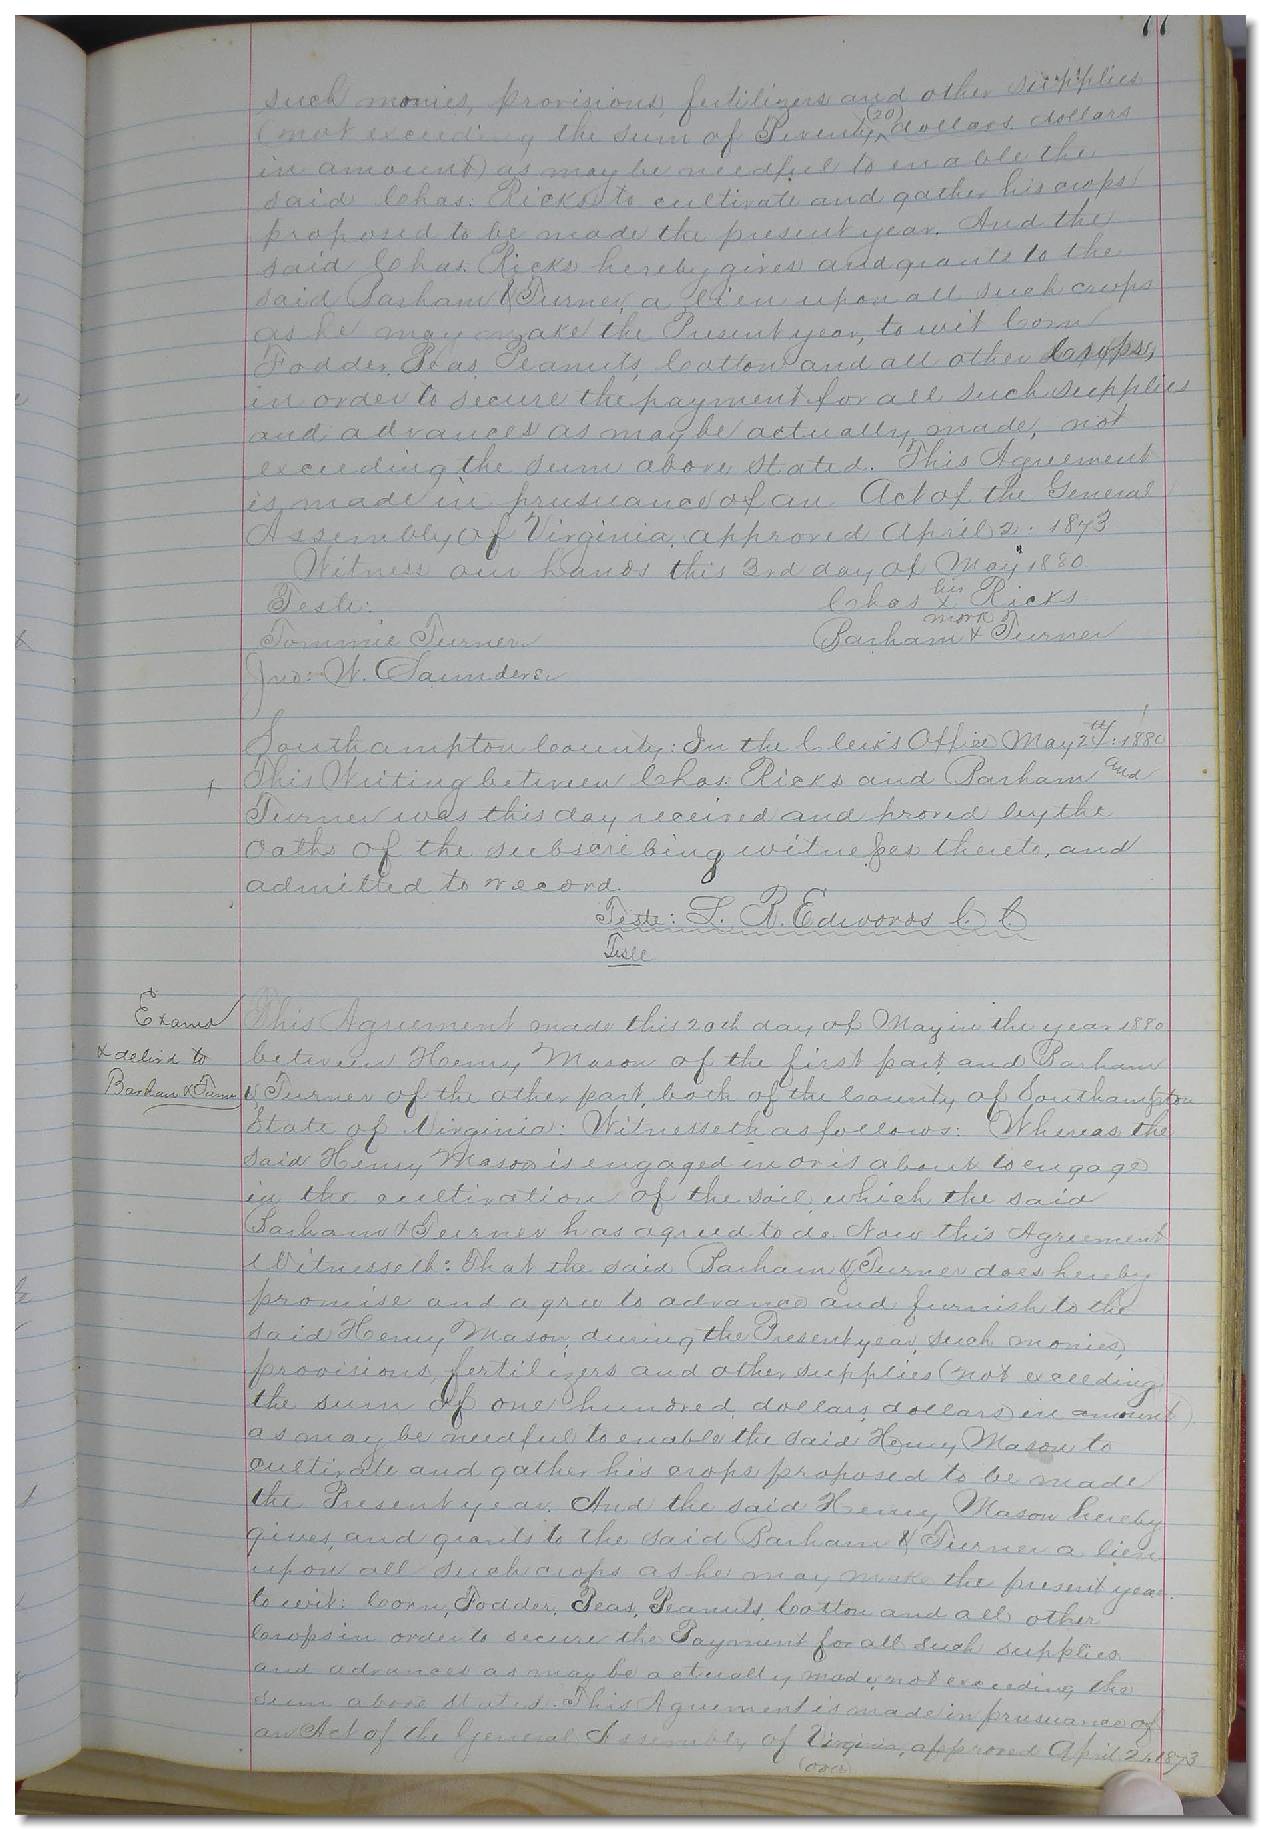 77
such monies, provisions, fertilizers and other supplies
(not exceeding the sum of Twenty (20) dollars dollars
in amount) as may be needful to enable the
said Chas. Ricks to cultivate and gather his crops
proposed to be made the present year. And the
said Chas. Ricks hereby gives and grants to the
said Barham & Turner, a lien upon all such crops
as he may make the Present year, to wit Corn
Fodder, Peas, Peanuts, Cotton and all other Crops,
in order to secure the payment for all such supplies
and advances as may be actually made, not
exceeding the sum above stated. This Agreement
is made in prusuance of an Act of the General
Assembly of Virginia, approved April 2. 1873
Witness our hands this 3rd day of May 1880
Teste: Chas his x mark Ricks
Tommie Turner Barham & Turner
Jno: W. Saunders
Southampton County: In the Clerk's Office May 24th: 1880
+ This Writing between Chas. Ricks and Barham and
Turner was this day received and proved by the
Oaths of the subscribing witnesses thereto, and
admitted to record.
Teste: L. R. Edwards C C
Teste
Examd
& delivd to
Barham & Turner
This Agreement made this 20th day of May in the year 1880
between Henry Mason of the first part and Barham
& Turner of the other part, both of the County of Southampton
State of Virginia: Witnesseth as follows: Whereas the
said Henry Mason is engaged in or is about to engage
in the cultivation of the soil, which the said
Barham & Turner has agreed to do. Now this Agreement
Witnesseth: That the said Barham & Turner does hereby
promise and agree to advance and furnish to the
said Henry Mason, during the Present year, such monies,
provisions, fertilizers and other supplies (not exceeding
the sum of one hundred dollars dollars) in amount)
as may be needful to enable the said Henry Mason to
cultivate and gather his crops proposed to be made
the Present year. And the said Henry Mason hereby
gives, and grants to the said Barham & Turner a lien
upon all such crops as he may make the present year
to wit: Corn, Fodder, Peas, Peanuts, Cotton and all other
Crops in order to secure the Payment for all such supplies
and advances as may be actually made, not exceeding the
sum above stated. This Agreement is made in prusuance of
an Act of the General Assembly of Virginia, approved April 2, 1873
(over)